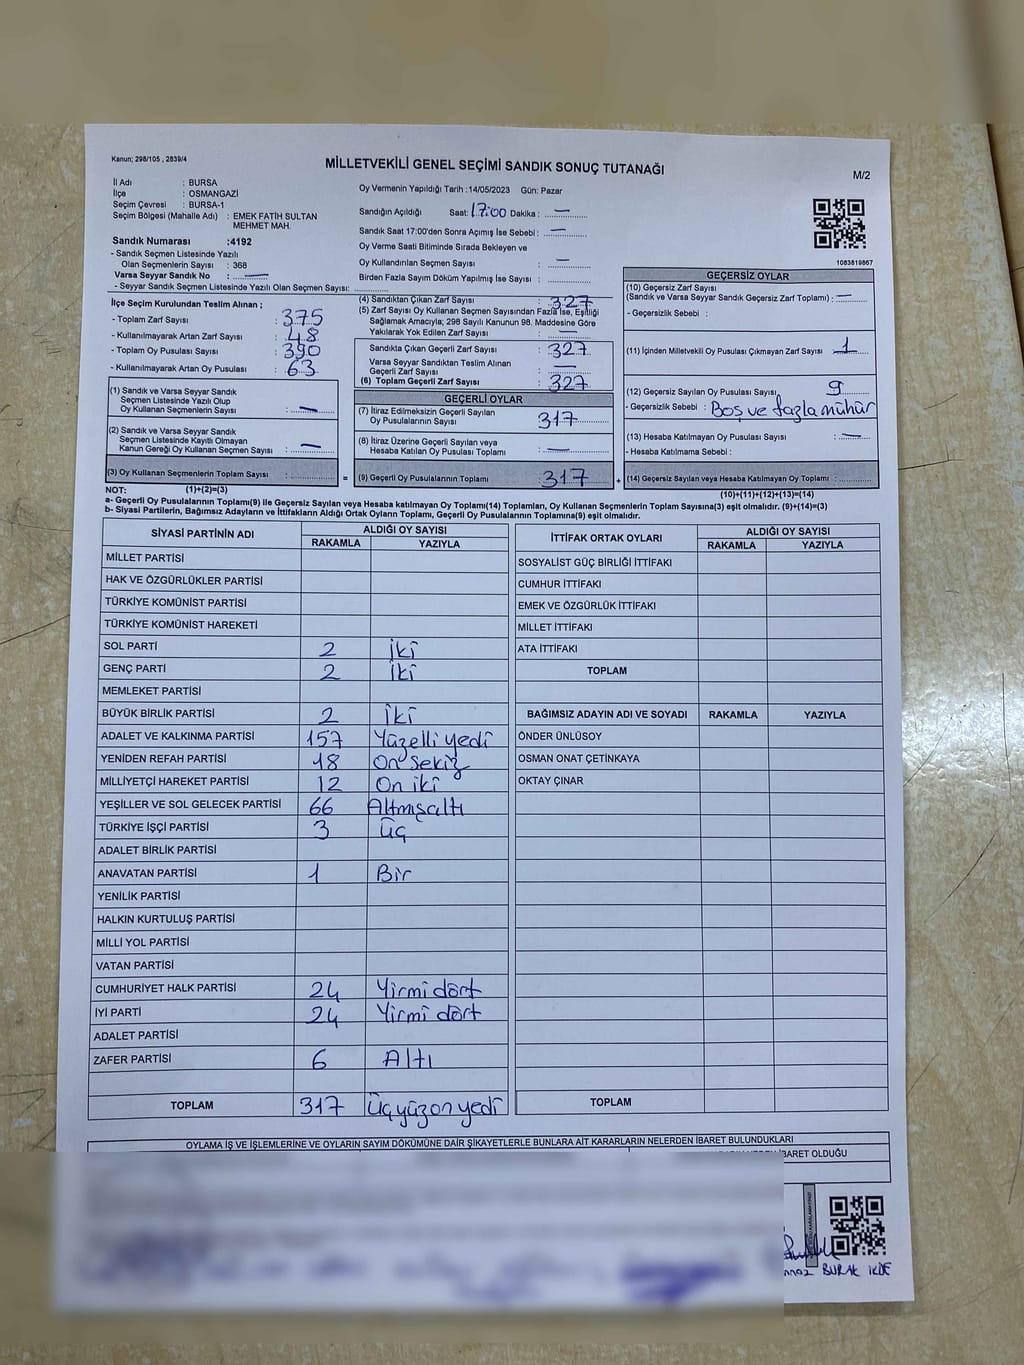 Kanun; 298/105 , 2839/4
MİLLETVEKİLİ GENEL SEÇİMİ SANDIK SONUÇ TUTANAĞI
M/2
İl Adı : BURSA
İlçe : OSMANGAZİ
Seçim Çevresi : BURSA-1
Seçim Bölgesi (Mahalle Adı) : EMEK FATİH SULTAN
MEHMET MAH.
Sandık Numarası :4192
- Sandık Seçmen Listesinde Yazılı
Olan Seçmenlerin Sayısı : 368
Varsa Seyyar Sandık No : —
- Seyyar Sandık Seçmen Listesinde Yazılı Olan Seçmen Sayısı:
Oy Vermenin Yapıldığı Tarih :14/05/2023 Gün: Pazar
Sandığın Açıldığı Saat: 17:00 Dakika : —
Sandık Saat 17:00'den Sonra Açımış İse Sebebi : —
Oy Verme Saati Bitiminde Sırada Bekleyen ve
Oy Kullandırılan Seçmen Sayısı : —
Birden Fazla Sayım Döküm Yapılmış İse Sayısı :
1083819867
İlçe Seçim Kurulundan Teslim Alınan ;
- Toplam Zarf Sayısı : 375
- Kullanılmayarak Artan Zarf Sayısı : 48
- Toplam Oy Pusulası Sayısı : 390
- Kullanılmayarak Artan Oy Pusulası : 63
(1) Sandık ve Varsa Seyyar Sandık
Seçmen Listesinde Yazılı Olup
Oy Kullanan Seçmenlerin Sayısı : —
(2) Sandık ve Varsa Seyyar Sandık
Seçmen Listesinde Kayıtlı Olmayan
Kanun Gereği Oy Kullanan Seçmen Sayısı : —
(3) Oy Kullanan Seçmenlerin Toplam Sayısı :
(4) Sandıktan Çıkan Zarf Sayısı : 327
(5) Zarf Sayısı Oy Kullanan Seçmen Sayısından Fazla İse, Eşitliği
Sağlamak Amacıyla; 298 Sayılı Kanunun 98. Maddesine Göre
Yakılarak Yok Edilen Zarf Sayısı : —
Sandıkta Çıkan Geçerli Zarf Sayısı : 327
Varsa Seyyar Sandıktan Teslim Alınan
Geçerli Zarf Sayısı : —
(6) Toplam Geçerli Zarf Sayısı : 327
GEÇERLİ OYLAR
(7) İtiraz Edilmeksizin Geçerli Sayılan
Oy Pusulalarının Sayısı : 317
(8) İtiraz Üzerine Geçerli Sayılan veya
Hesaba Katılan Oy Pusulası Toplamı : —
= (9) Geçerli Oy Pusulalarının Toplamı : 317 +
GEÇERSİZ OYLAR
(10) Geçersiz Zarf Sayısı
(Sandık ve Varsa Seyyar Sandık Geçersiz Zarf Toplamı) : —
- Geçersizlik Sebebi :
(11) İçinden Milletvekili Oy Pusulası Çıkmayan Zarf Sayısı 1
(12) Geçersiz Sayılan Oy Pusulası Sayısı 9
- Geçersizlik Sebebi : Boş ve fazla mühür
(13) Hesaba Katılmayan Oy Pusulası Sayısı : —
- Hesaba Katılmama Sebebi :
(14) Geçersiz Sayılan veya Hesaba Katılmayan Oy Toplamı :
NOT: (1)+(2)=(3) (10)+(11)+(12)+(13)=(14)
a- Geçerli Oy Pusulalarının Toplamı(9) ile Geçersiz Sayılan veya Hesaba katılmayan Oy Toplamı(14) Toplamları, Oy Kullanan Seçmenlerin Toplam Sayısına(3) eşit olmalıdır. (9)+(14)=(3)
b- Siyasi Partilerin, Bağımsız Adayların ve İttifakların Aldığı Ortak Oyların Toplamı, Geçerli Oy Pusulalarının Toplamına(9) eşit olmalıdır.
SİYASİ PARTİNİN ADI ALDIĞI OY SAYISI
RAKAMLA YAZIYLA
MİLLET PARTİSİ
HAK VE ÖZGÜRLÜKLER PARTİSİ
TÜRKİYE KOMÜNİST PARTİSİ
TÜRKİYE KOMÜNİST HAREKETİ
SOL PARTİ 2 İki
GENÇ PARTİ 2 İki
MEMLEKET PARTİSİ
BÜYÜK BİRLİK PARTİSİ 2 İki
ADALET VE KALKINMA PARTİSİ 157 Yüzelli yedi
YENİDEN REFAH PARTİSİ 18 On sekiz
MİLLİYETÇİ HAREKET PARTİSİ 12 On iki
YEŞİLLER VE SOL GELECEK PARTİSİ 66 Altmışaltı
TÜRKİYE İŞÇİ PARTİSİ 3 Üç
ADALET BİRLİK PARTİSİ
ANAVATAN PARTİSİ 1 Bir
YENİLİK PARTİSİ
HALKIN KURTULUŞ PARTİSİ
MİLLİ YOL PARTİSİ
VATAN PARTİSİ
CUMHURİYET HALK PARTİSİ 24 Yirmi dört
İYİ PARTİ 24 Yirmi dört
ADALET PARTİSİ
ZAFER PARTİSİ 6 Altı
TOPLAM 317 Üçyüzonyedi
İTTİFAK ORTAK OYLARI ALDIĞI OY SAYISI
RAKAMLA YAZIYLA
SOSYALİST GÜÇ BİRLİĞİ İTTİFAKI
CUMHUR İTTİFAKI
EMEK VE ÖZGÜRLÜK İTTİFAKI
MİLLET İTTİFAKI
ATA İTTİFAKI
TOPLAM
BAĞIMSIZ ADAYIN ADI VE SOYADI RAKAMLA YAZIYLA
ÖNDER ÜNLÜSOY
OSMAN ONAT ÇETİNKAYA
OKTAY ÇINAR
TOPLAM
OYLAMA İŞ VE İŞLEMLERİNE VE OYLARIN SAYIM DÖKÜMÜNE DAİR ŞİKAYETLERLE BUNLARA AİT KARARLARIN NELERDEN İBARET BULUNDUKLARI
İBARET OLDUĞU
BURAK